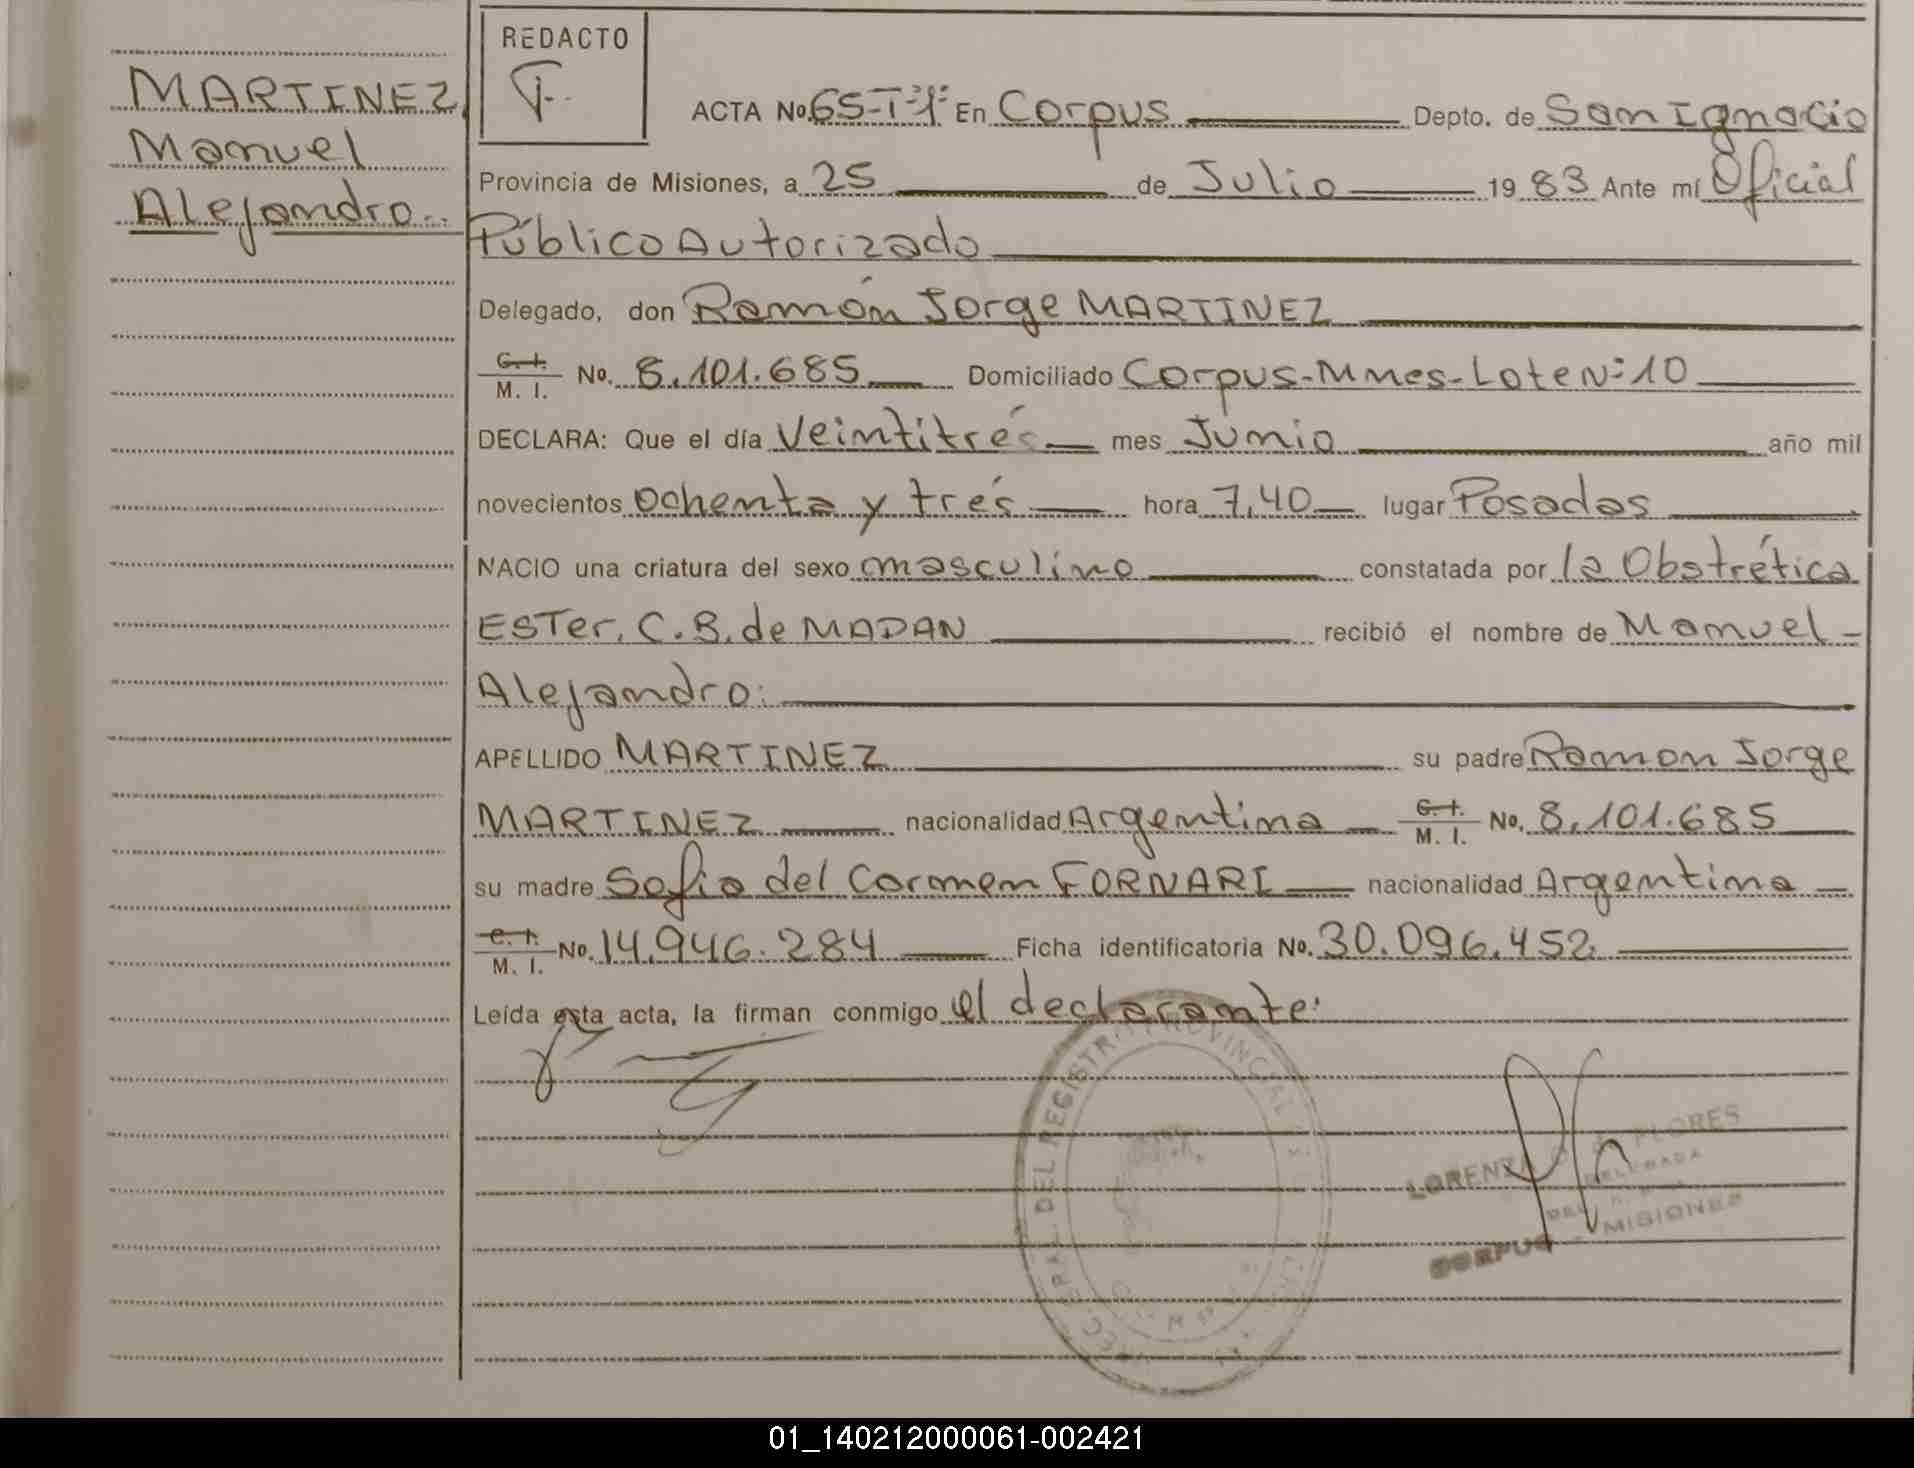 REDACTO
MARTINEZ
Manuel
Alejandro..
ACTA No 65-Tº1º En Corpus Depto. de San Ignacio
Provincia de Misiones, a 25 de Julio 19 83 Ante mí Oficial
Público Autorizado
Delegado, don Ramón Jorge MARTINEZ
C. I. M. I. No. 8.101.685 Domiciliado Corpus-Mnes-Lote Nº 10
DECLARA: Que el día Veintitrés mes Junio año mil
novecientos ochenta y trés hora 7,40 lugar Posadas
NACIO una criatura del sexo masculino constatada por la Obstrética
ESTer. C.B. de MADAN recibió el nombre de Manuel-
Alejandro:
APELLIDO MARTINEZ su padre Ramon Jorge
MARTINEZ nacionalidad Argentina C. I. M. I. No. 8.101.685
su madre Sofia del Carmen FORNARI nacionalidad Argentina
C. I. M. I. No. 14.946.284 Ficha identificatoria No. 30.096.452
Leída esta acta, la firman conmigo el declarante:
DEL REGISTRO PROVINCIAL
LORENZA FLORES
DELEGADA
CORPUS - MISIONES
01_140212000061-002421